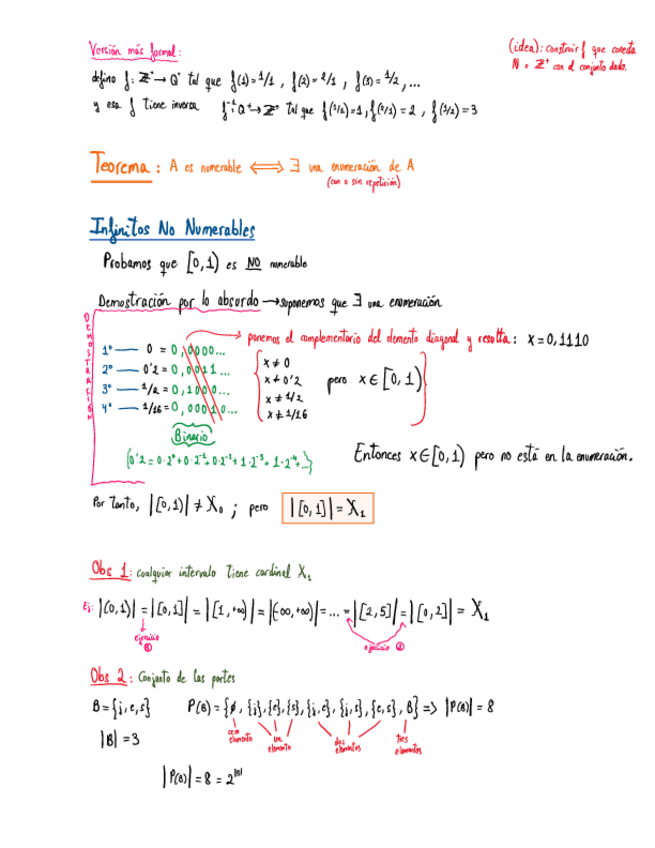 Versión más formal:
(idea): construir f que conecta
N o Z⁺ con el conjunto dado.
defino f: Z⁺ → Q⁺ tal que f(1) = 1/1 , f(2) = 2/1 , f(3) = 1/2 , ...
y esa f tiene inversa f⁻¹: Q⁺ → Z⁺ tal que f(1/1) = 1, f(2/1) = 2 , f(1/2) = 3
Teorema: A es numerable ⟺ ∃ una enumeración de A
(con o sin repetición)
Infinitos No Numerables
Probamos que [0,1) es NO numerable
Demostración por lo absurdo → suponemos que ∃ una enumeración
DEMOSTRACIÓN
ponemos el complementario del elemento diagonal y resulta: x = 0,1110
1º — 0 = 0,0000...
2º — 0'2 = 0,0011...
3º — 1/2 = 0,1000...
4º — 1/16 = 0,00010...
x ≠ 0
x ≠ 0'2
x ≠ 1/2
x ≠ 1/16
pero x ∈ [0,1)
Binario
(0'2 = 0·2⁰ + 0·2⁻¹ + 0·2⁻² + 1·2⁻³ + 1·2⁻⁴ + ...)
Entonces x ∈ [0,1) pero no está en la enumeración.
Por tanto, |[0,1)| ≠ X₀ ; pero |[0,1]| = X₁
Obs 1: cualquier intervalo tiene cardinal X₁
Ej: |(0,1)| = |[0,1]| = |[1,+∞)| = |(-∞,+∞)| = ... = |[2,5]| = |[0,2]| = X₁
ejercicio
ejercicio
Obs 2: Conjunto de las partes
B = {j,e,s} P(B) = {ø, {j}, {e}, {s}, {j,e}, {j,s}, {e,s}, B} => |P(B)| = 8
cero elemento
un elemento
dos elementos
tres elementos
|B| = 3
|P(B)| = 8 = 2^|B|